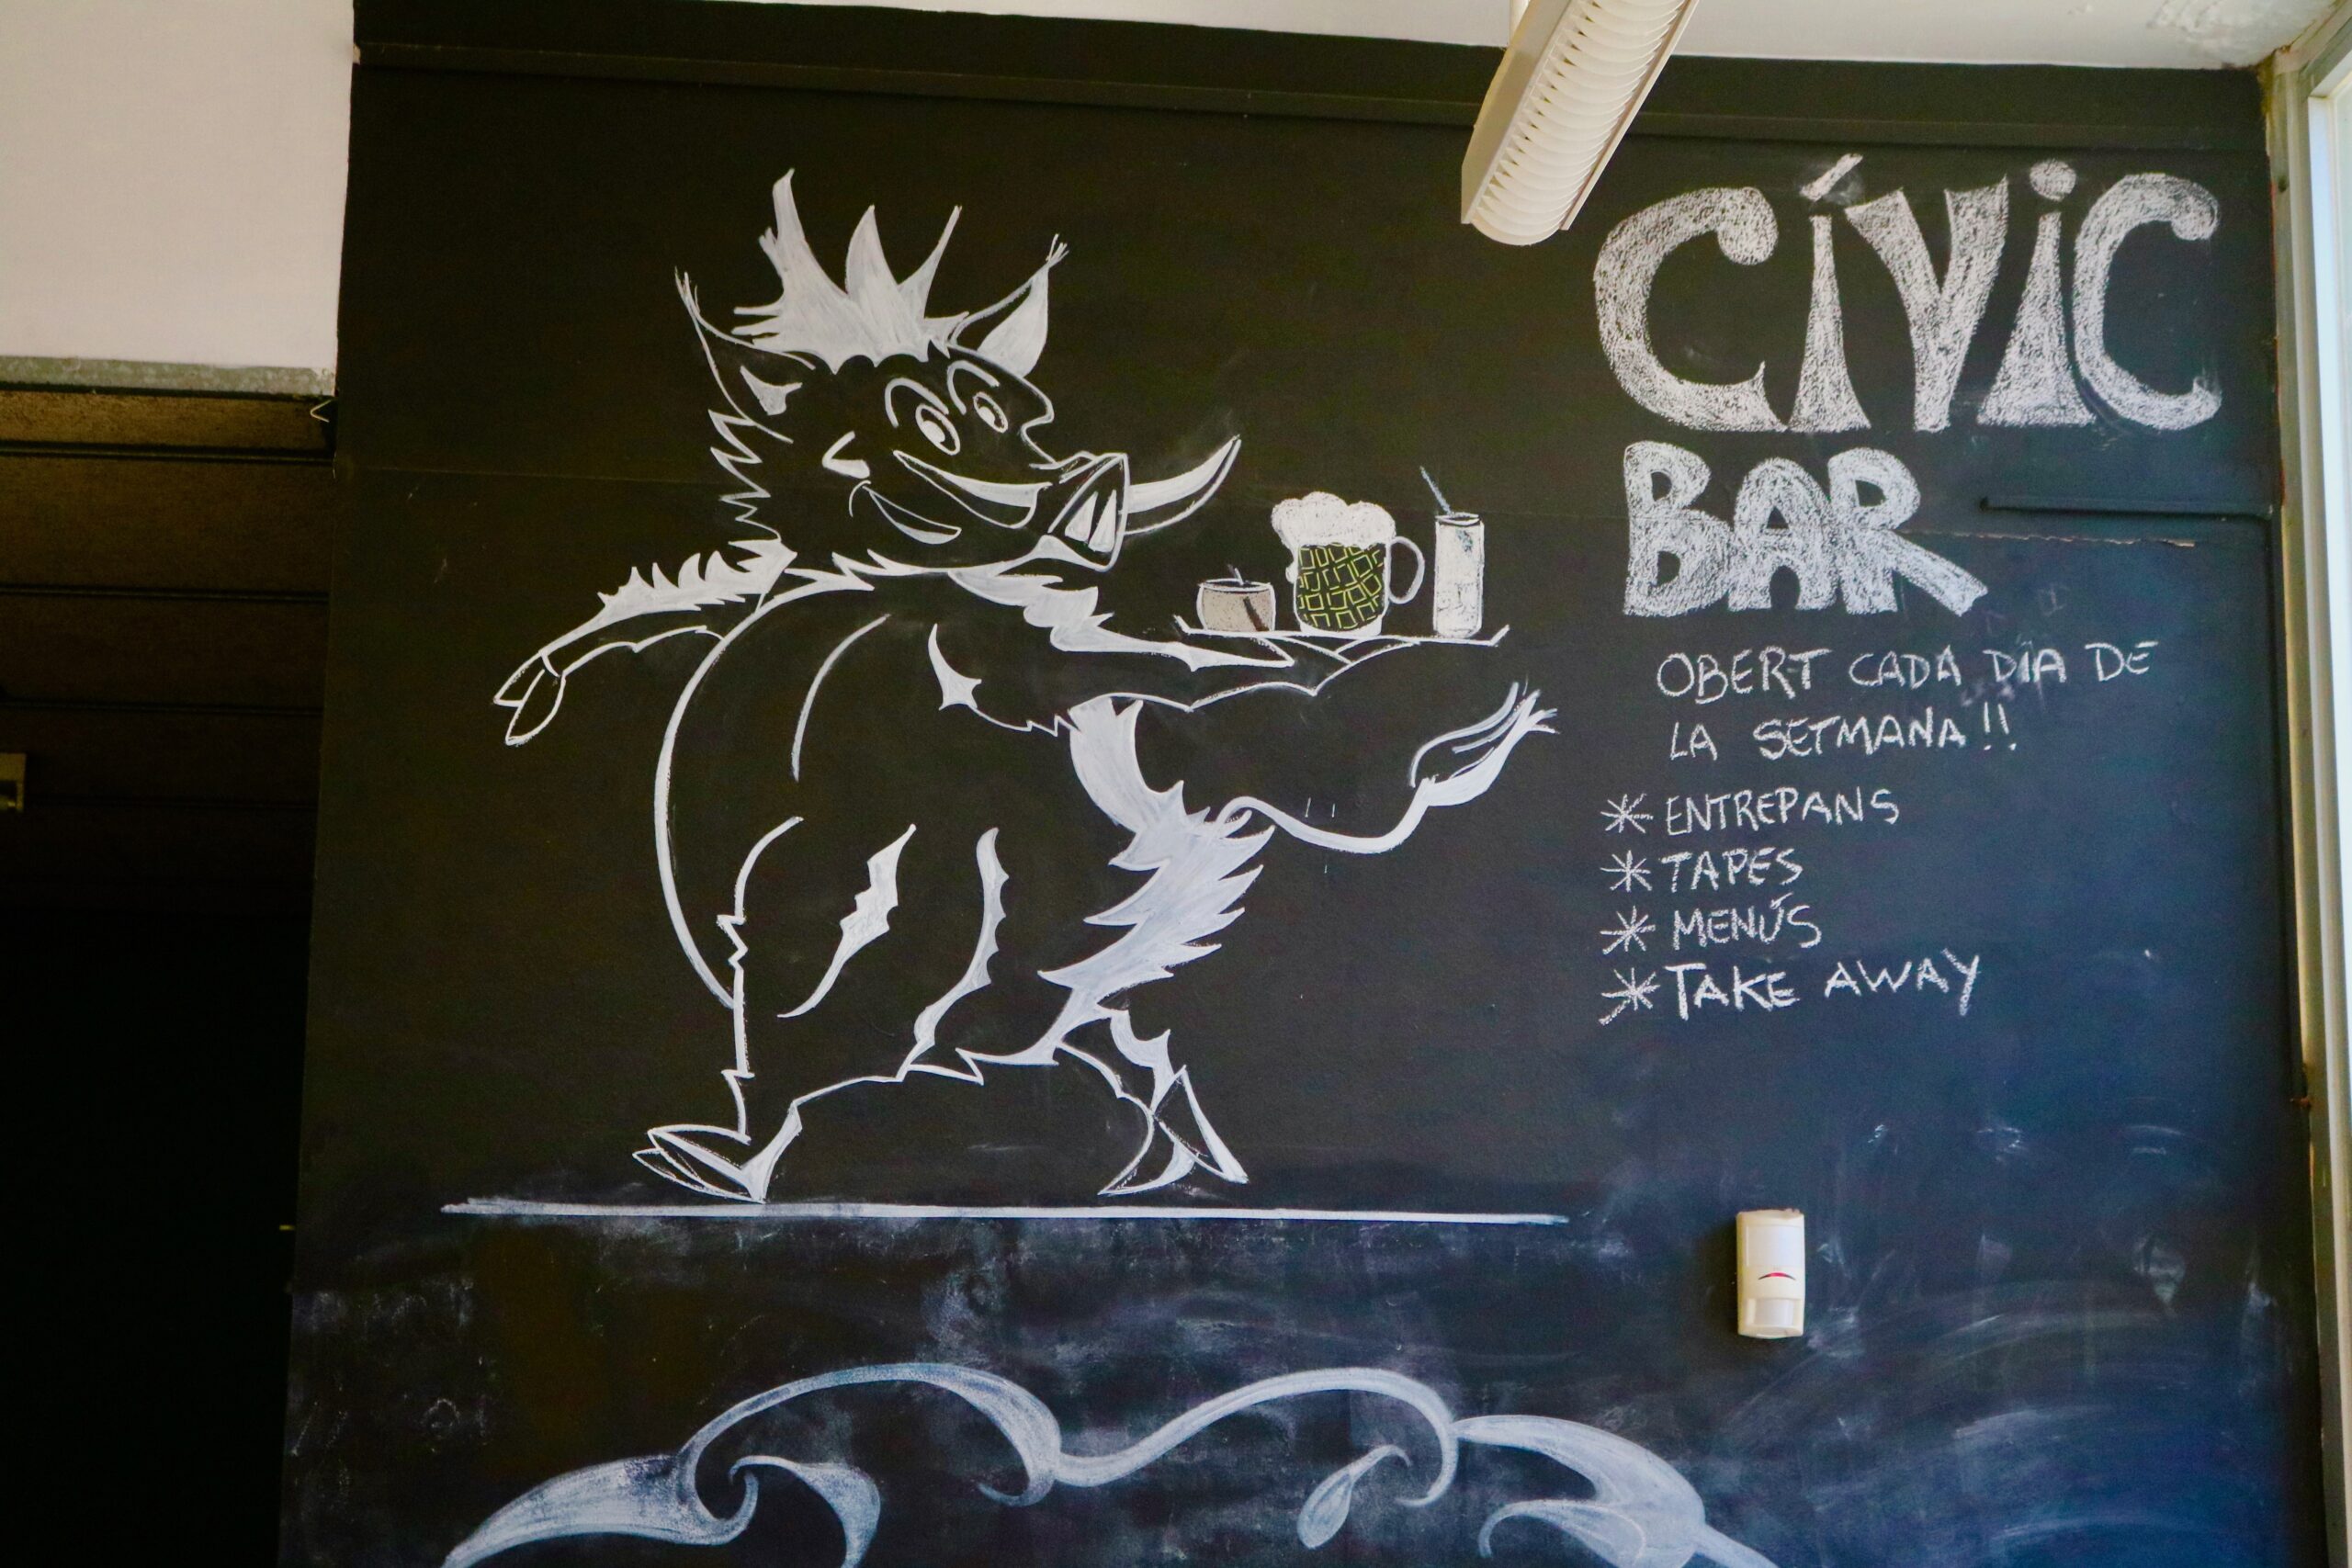 CÍVIC
BAR
OBERT CADA DIA DE
LA SETMANA!!
* ENTREPANS
* TAPES
* MENÚS
* TAKE AWAY